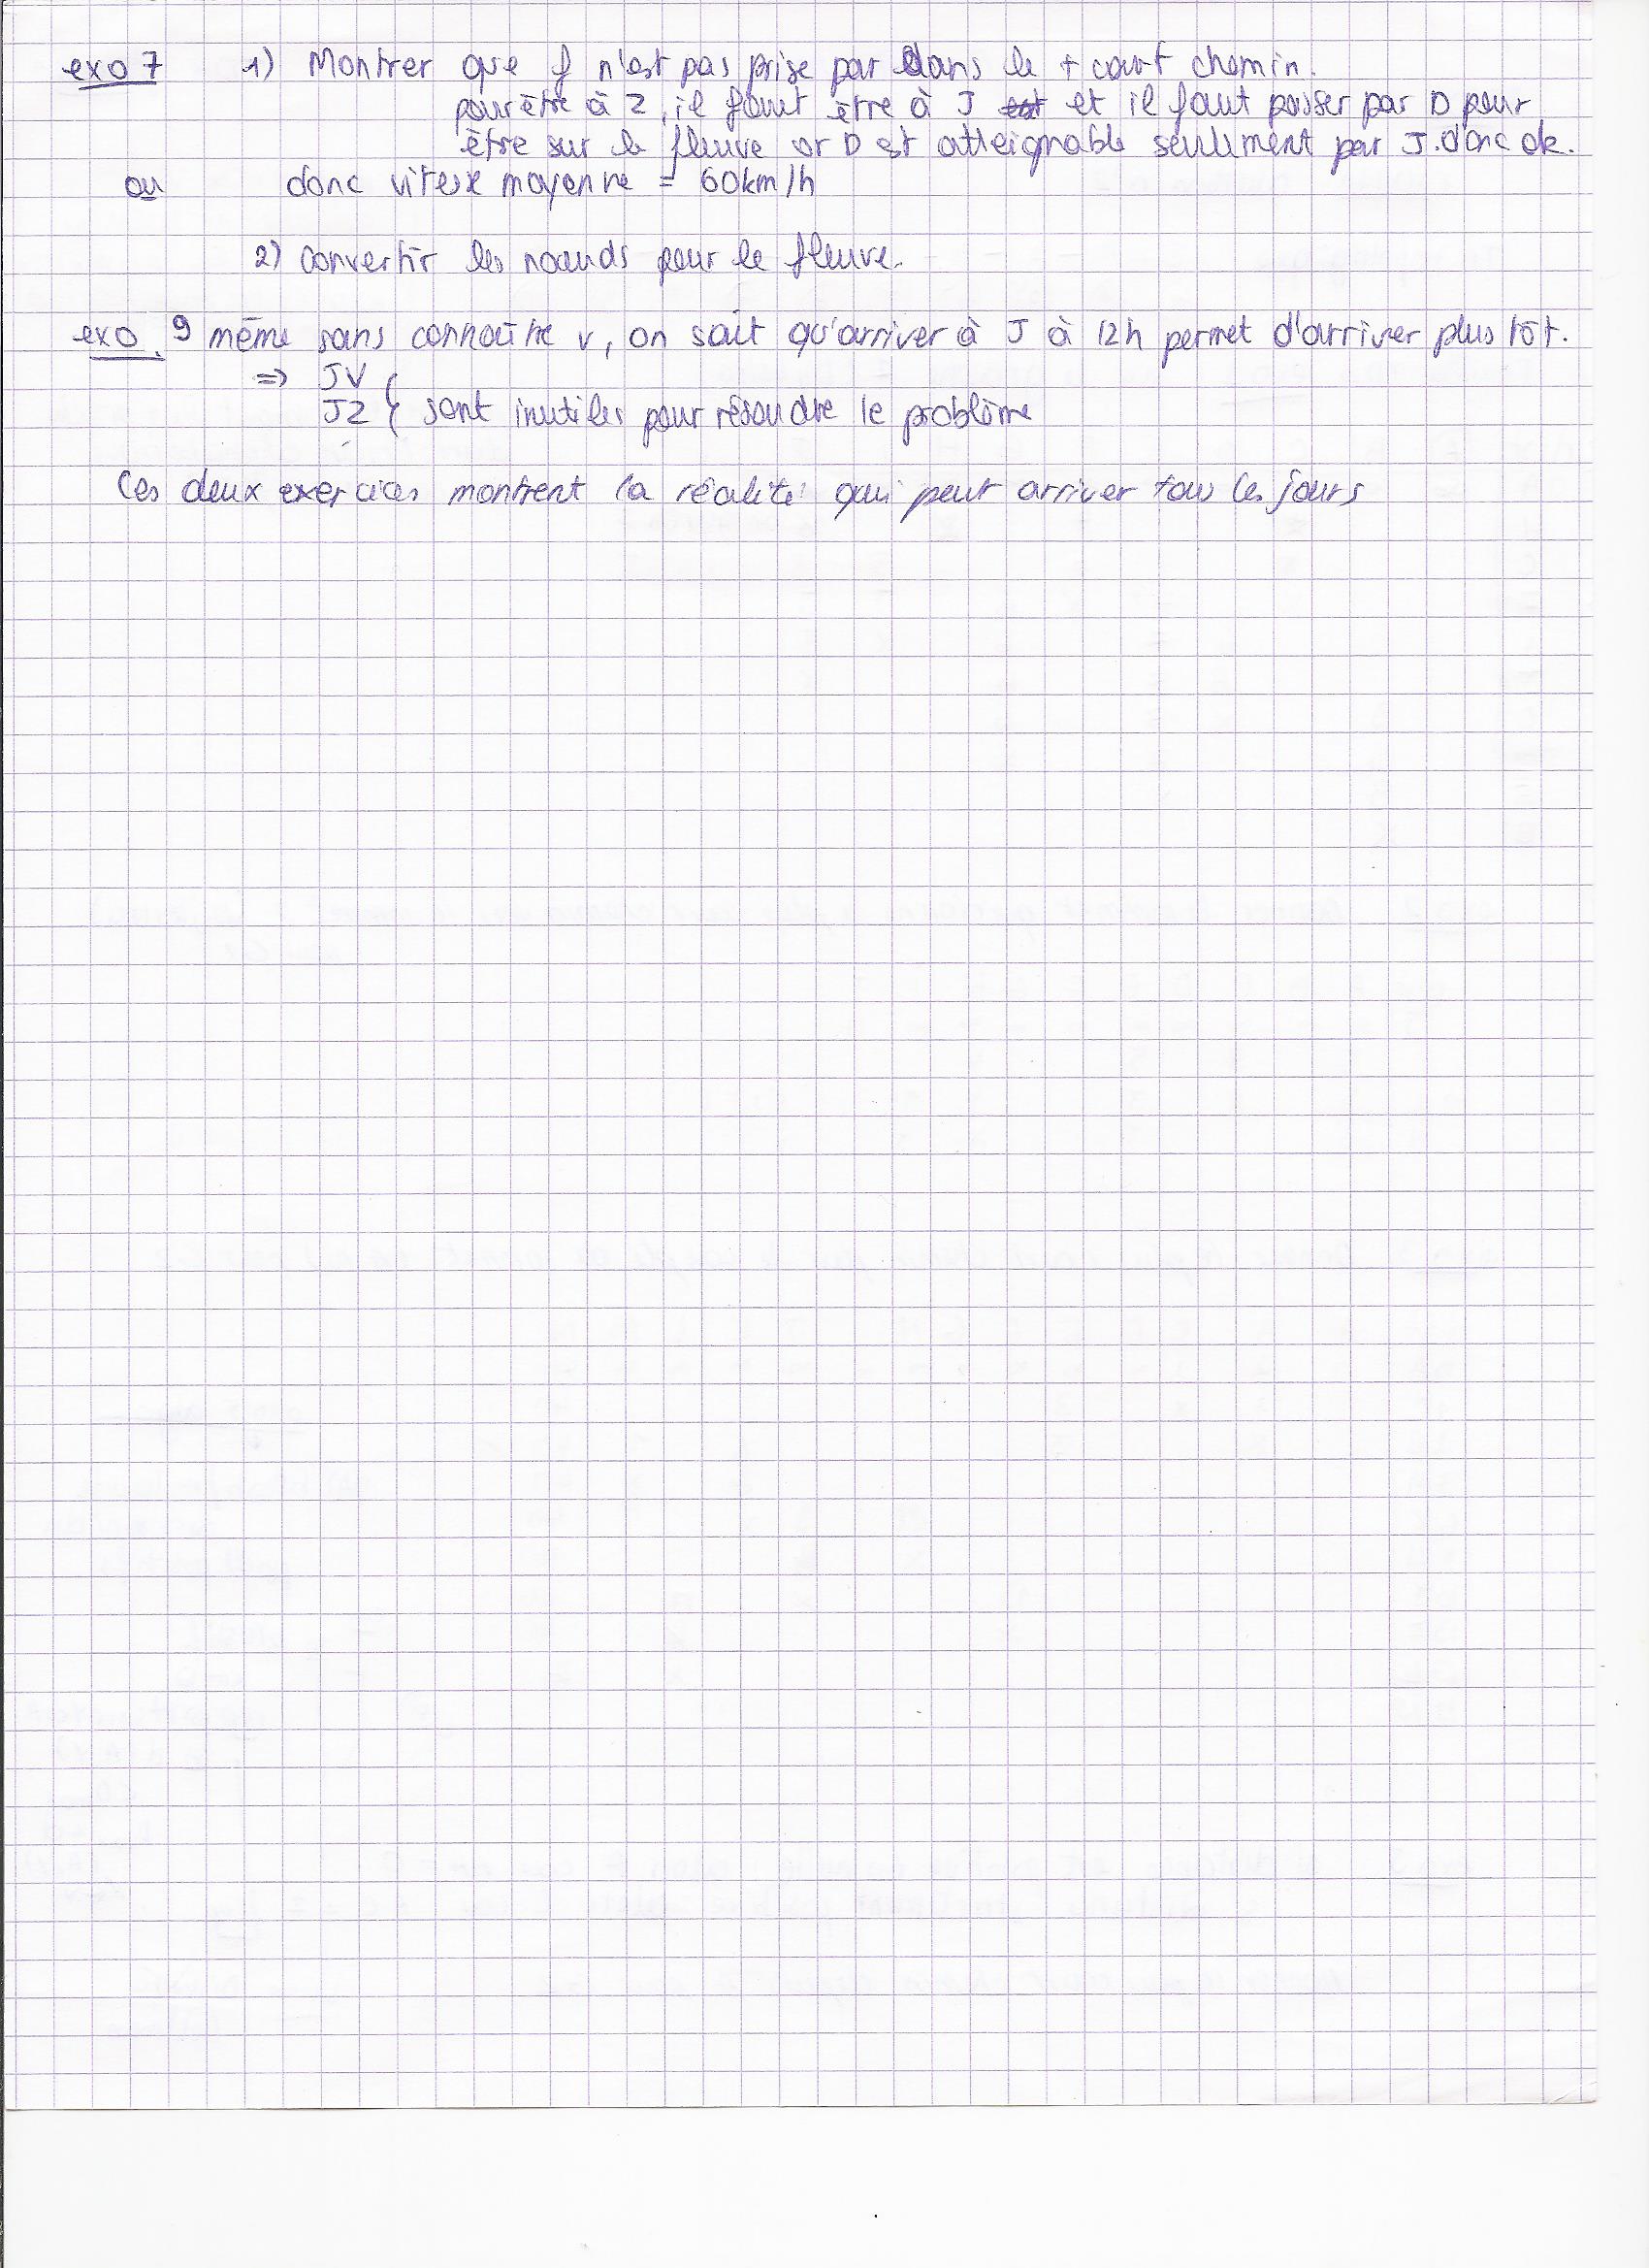 exo 7 1) Montrer que f n'est pas prise par dans le + court chemin.
pour être à Z, il faut être à J et il faut passer par D pour
être sur le fleuve or D est atteignable seulement par J. donc ok.
ou donc vitesse moyenne = 60km/h
2) convertir les noeuds pour le fleuve.
exo. 9 même sans connaître v, on sait qu'arriver à J à 12h permet d'arriver plus tôt.
=> JV
JZ } sont inutiles pour résoudre le problème
Ces deux exercices montrent la réalité qui peut arriver tous les jours